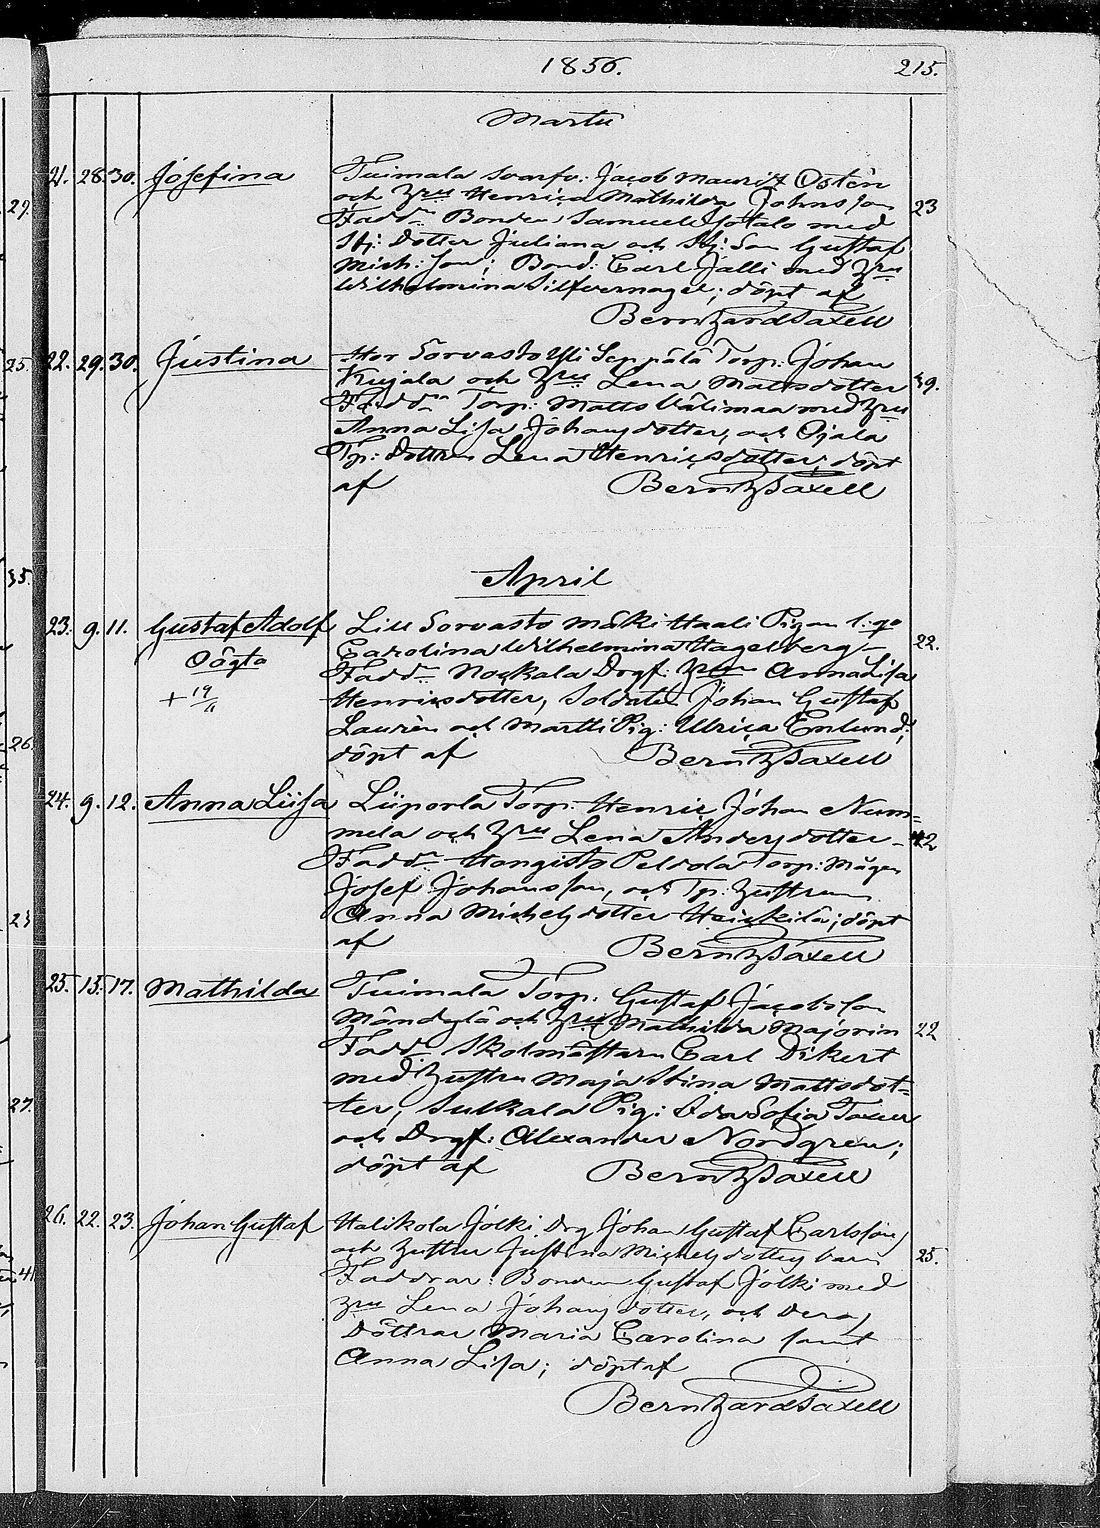 1856. 215.
Martii
21. 28. 30. Josefina Tuimala Svarfv: Jacob Mauritz Ostèn
och Hru Henrica Mathilda Johnsson 23
Faddr Bonden Samuel Jotalo med
Stj: Dotter Juliana och Stj: Son Gustaf
Mich: Son; Bond: Carl Jalli med Hru
Wilhelmina Silfvernagel; döpt af
Bernhard Saxell
22. 29. 30. Justina Hor Sorvasto Yli Seppälä Torp: Johan
Kujala och Hru Lena Mattsdotter 39.
Faddr Torp: Matts Välimaa med Hru
Anna Lisa Johansdotter, och Ojala
Tp: Dottren Lena Henricsdotter; döpt
af Bernh Saxell
April
23. 9. 11. Gustaf Adolf Lill Sorvasto Mäki Haali Pigan
Oägta Carolina Wilhelmina Hagelberg 22.
+ 19/11 Faddr Nockala Drgf: Anna Lisa
Henricsdotter, Soldaten Johan Gustaf
Laurèn och Martti Pig: Ulrica Enlund;
döpt af Bernh Saxell
24. 9. 12. Anna Liisa Liiporla Torp: Henric Johan Num=
mela och Hru Lena Andersdotter 42
Faddr Hongisto Peldola Torp: Mågen
Josef Johansson, och Tp: Hustrun
Anna Michelsdotter Heickilä; döpt
af Bernh Saxell
25. 15. 17. Mathilda Tuimala Torp. Gustaf Jacobsson
och Hru Mathilda Majorin 22
Faddr Skolmästaren Carl Dikert
med Hustru Maja Stina Mattsdot=
ter, Sulkala Pig: Ida Sofia Saxell
och Drgf: Alexander Nordgren;
döpt af Bernh Saxell
26. 22. 23. Johan Gustaf Halikola Jölki Drg Johan Gustaf Carlsson
och Hustru Justina Michelsdotters barn 25.
Faddrar: Bonden Gustaf Jölki med
Hru Lena Johansdotter, och deras
Döttrar Maria Carolina samt
Anna Lisa; döpt af
Bernhard Saxell
27.
25.
35.
26.
23
27.
41